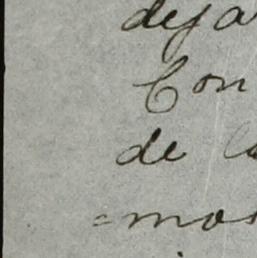 deja
Con
de
=mos